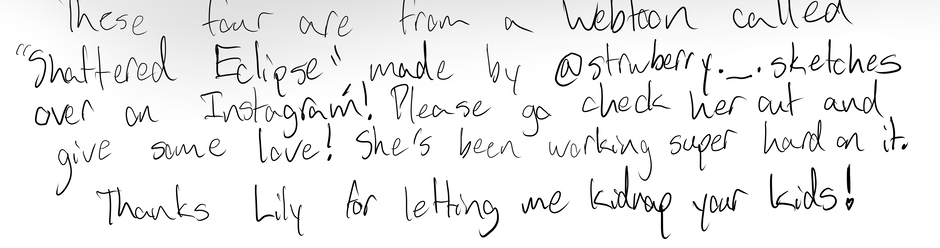 These four are from a Webtoon called
"Shattered Eclipse" made by @strwberry._.sketches
over on Instagram! Please go check her out and
give some love! She's been working super hard on it.
Thanks Lily for letting me kidnap your kids!